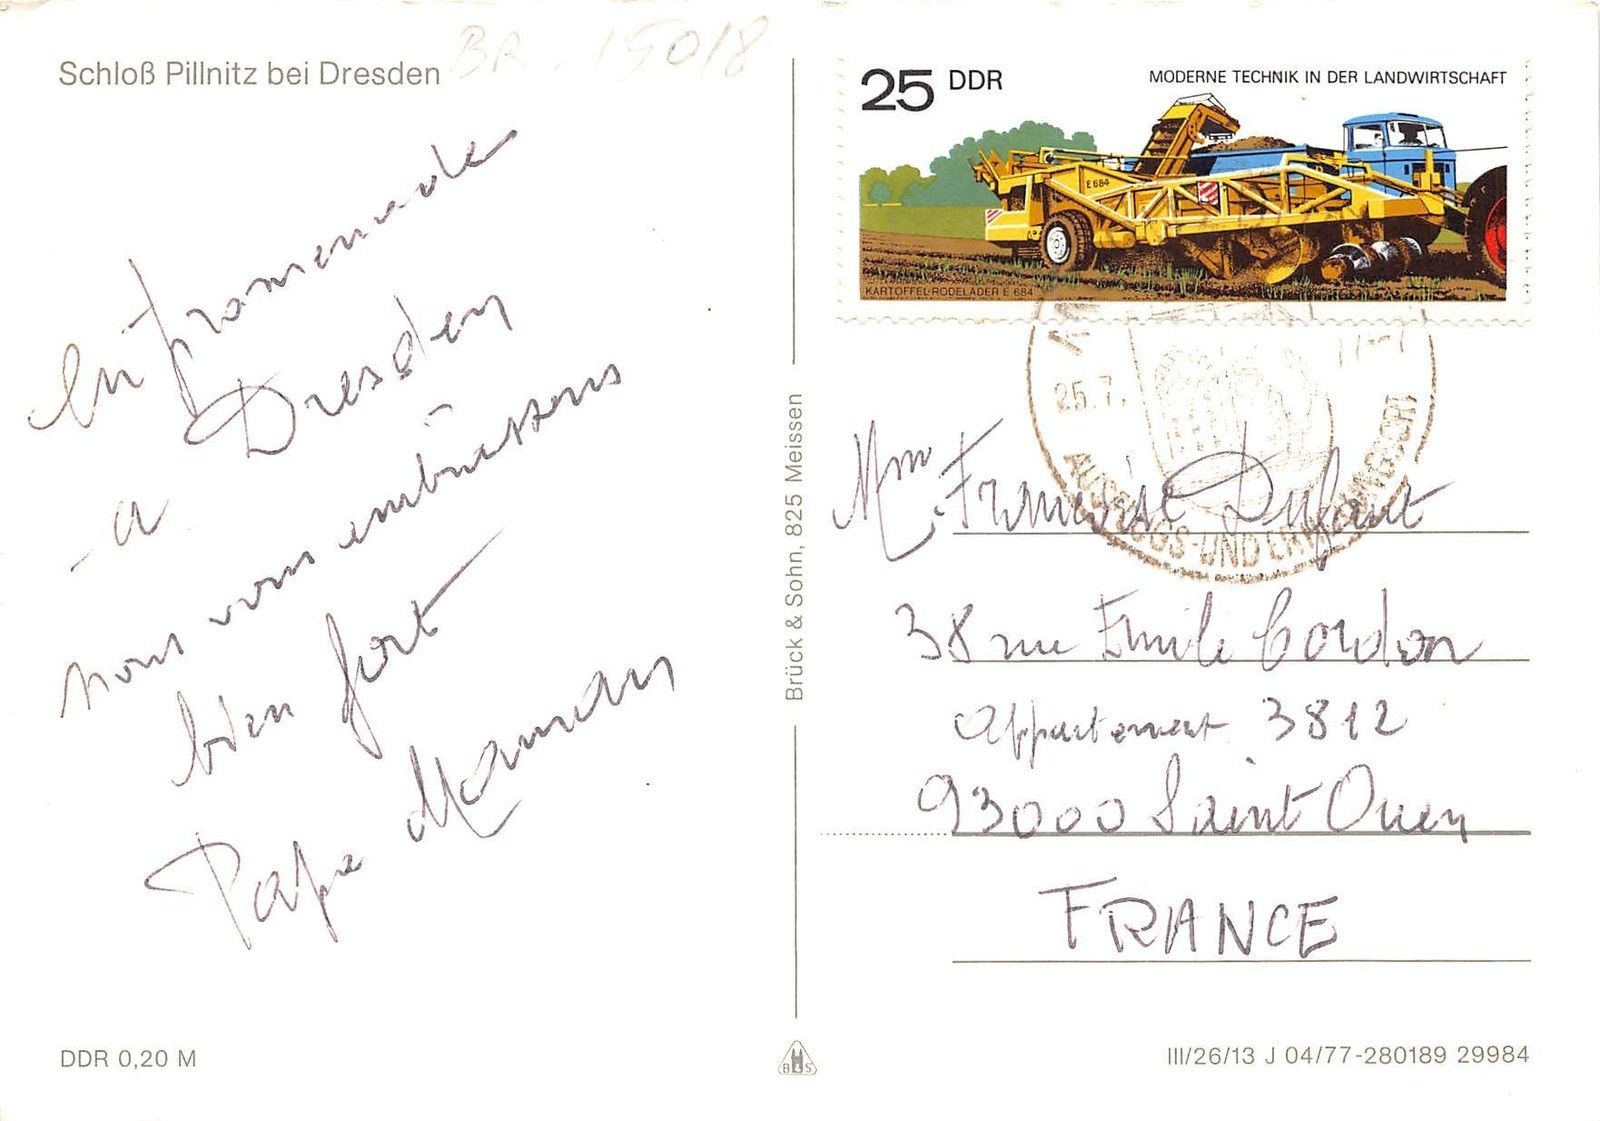 Schloß Pillnitz bei Dresden
BR - 15018
25 DDR
MODERNE TECHNIK IN DER LANDWIRTSCHAFT
E 684
KARTOFFEL-RODELADER E 684
25.7.
AUSFLUGS-UND ERHOLUNGSORT
En promenade
a Dresden
nous vous embrassons
bien fort
Papa Maman
Brück & Sohn, 825 Meissen
Mme Françoise
38 rue Emile Cordon
Appartement 3812
93000 Saint Ouen
FRANCE
DDR 0,20 M
B&S
III/26/13 J 04/77-280189 29984